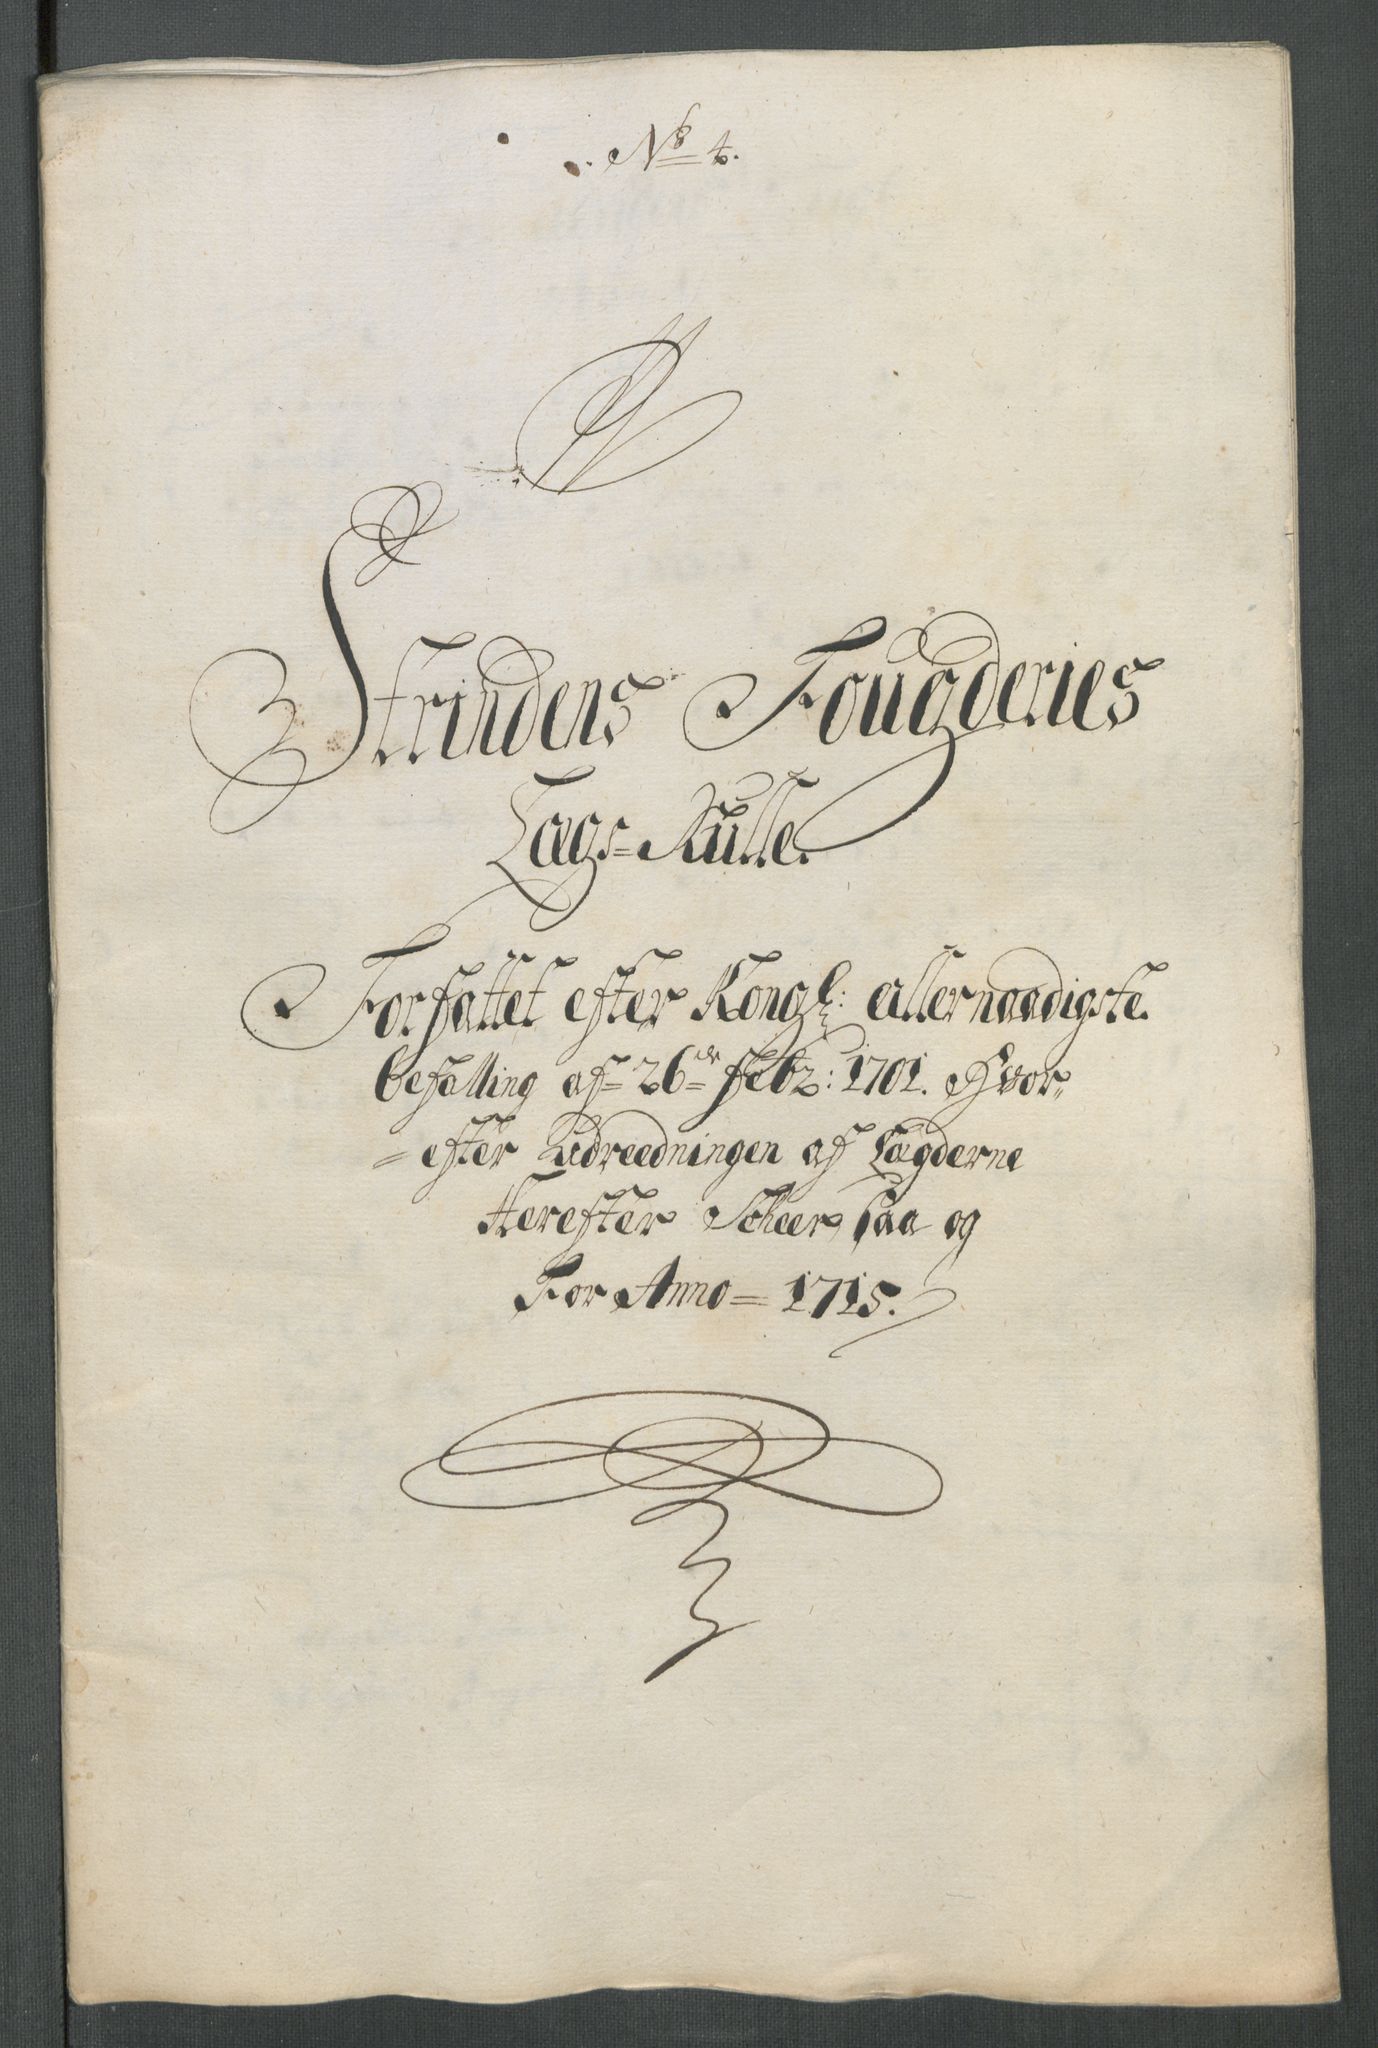 No 4.
Strindens Fougderies
Lægs=Rulle.
Forfattet efter Kongl: allernaadigste
befalling af 26de Febr: 1701. Hvor=
=efter Udreedningen af Lægderne
Herefter Scheer, saa og
For Anno = 1715.